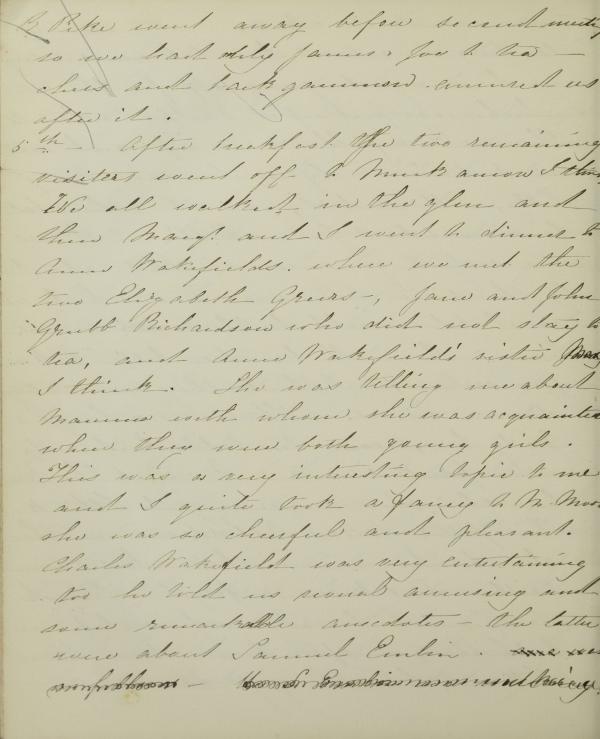 R Pike went away before second meeting
so we had only James & Joe to tea —
chess and backgammon amused us
after it.
5th — After breakfast the two remaining
visiters went off to I think
We all walked in the glen and
then Margt. and I went to dinner to
Anne Wakefields. where we met the
two Elizabeth Greers —, Jane and John
Grubb Richardson who did not stay to
tea, and Anne Wakefield's sister
I think. She was telling me about
Mamma with whom she was acquainted
when they were both young girls.
This was a very interesting topic to me
and I quite took a fancy to M. Moor
she was so cheerful and pleasant.
Charles Wakefield was very entertaining
too he told us several amusing and
some remarkable anecdotes — the latter
were about Samuel Emlin.